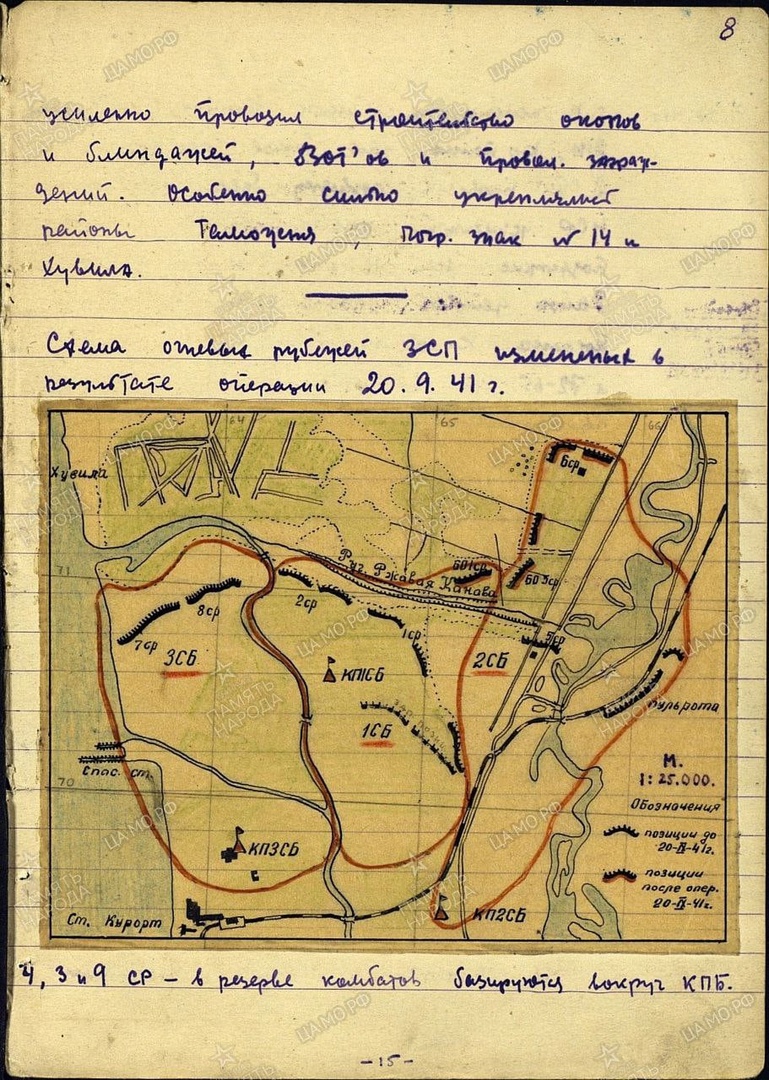 8
усиленно проводил строительство окопов
и блиндажей, ДЗОТ'ов и провол. заграж-
дений. Особенно сильно укреплялись
районы Таможня, погр. знак № 14 и
Хувила.
Схема огневых рубежей 3СП измененых в
результате операции 20.9.41 г.
64
65
66
Хувила
6ср
71
Руч. Ржавая Канава
БО1ср
БО3ср
8ср
2ср
7ср
1ср
5ср
3СБ
КП1СБ
2СБ
1СБ
Курорта
Спас. ст.
М.
1:25.000.
70
Обозначения
позиции до
20-IX-41г.
КП3СБ
позиции
после опер.
20-IX-41г.
Ст. Курорт
КП2СБ
4, 3 и 9 СР – в резерве комбатов базируются вокруг КПБ.
-15-
ЦАМО.РФ
ПАМЯТЬ
НАРОДА